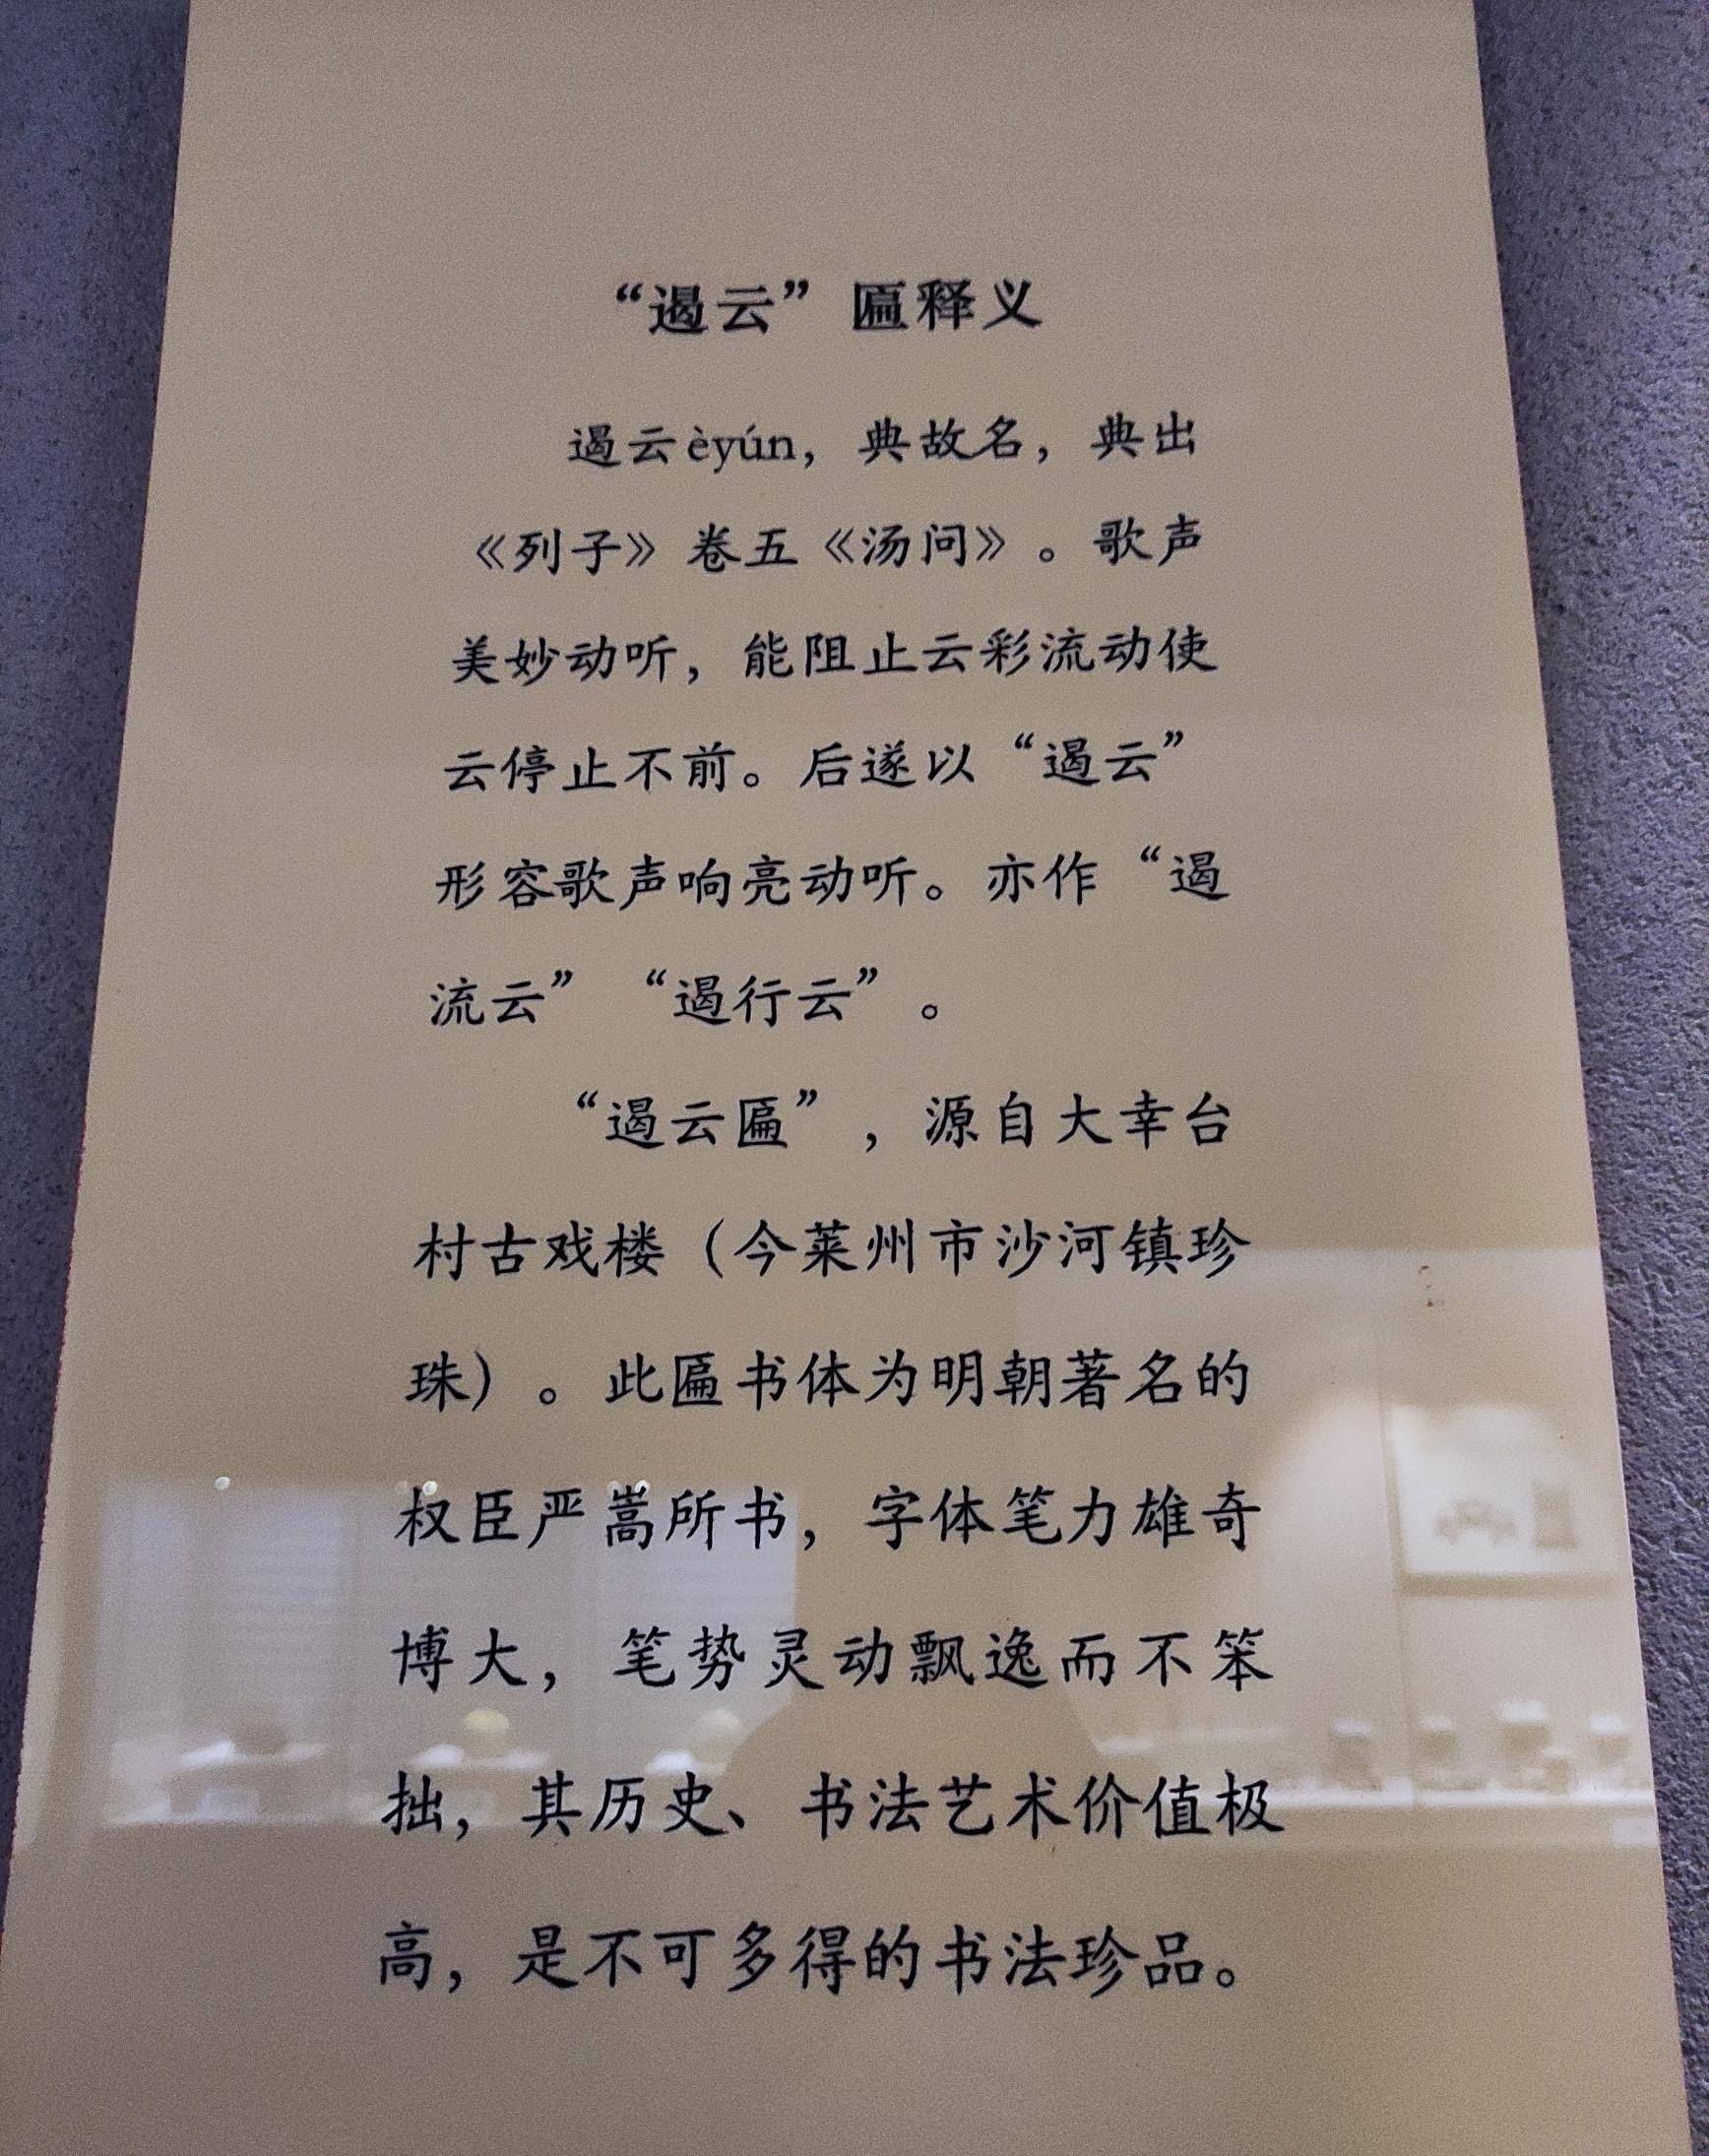 “遏云”匾释义
遏云èyún，典故名，典出
《列子》卷五《汤问》。歌声
美妙动听，能阻止云彩流动使
云停止不前。后遂以“遏云”
形容歌声响亮动听。亦作“遏
流云”“遏行云”。
“遏云匾”，源自大幸台
村古戏楼（今莱州市沙河镇珍
珠）。此匾书体为明朝著名的
权臣严嵩所书，字体笔力雄奇
博大，笔势灵动飘逸而不笨
拙，其历史、书法艺术价值极
高，是不可多得的书法珍品。